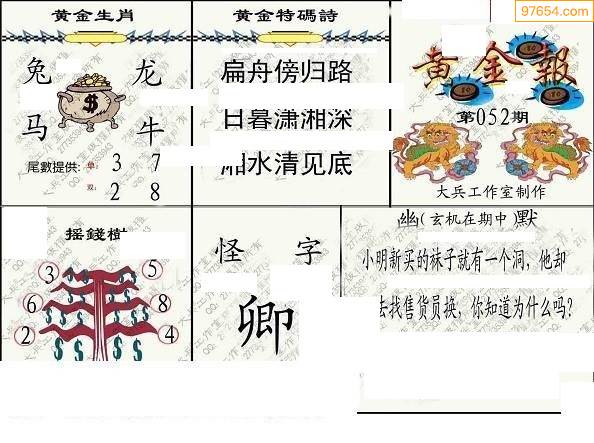 97654.com
黄金生肖
兔 龙
马 牛
尾數提供: 单: 3 7
双: 2 8
黄金特碼詩
扁舟傍归路
日暮潇湘深
湘水清见底
黄金報
第052期
大兵工作室制作
摇錢樹
3 5
6 8
2 4
怪 字
卿
幽(玄机在期中)默
小明新买的袜子就有一个洞，他却
去找售货员换，你知道为什么吗？